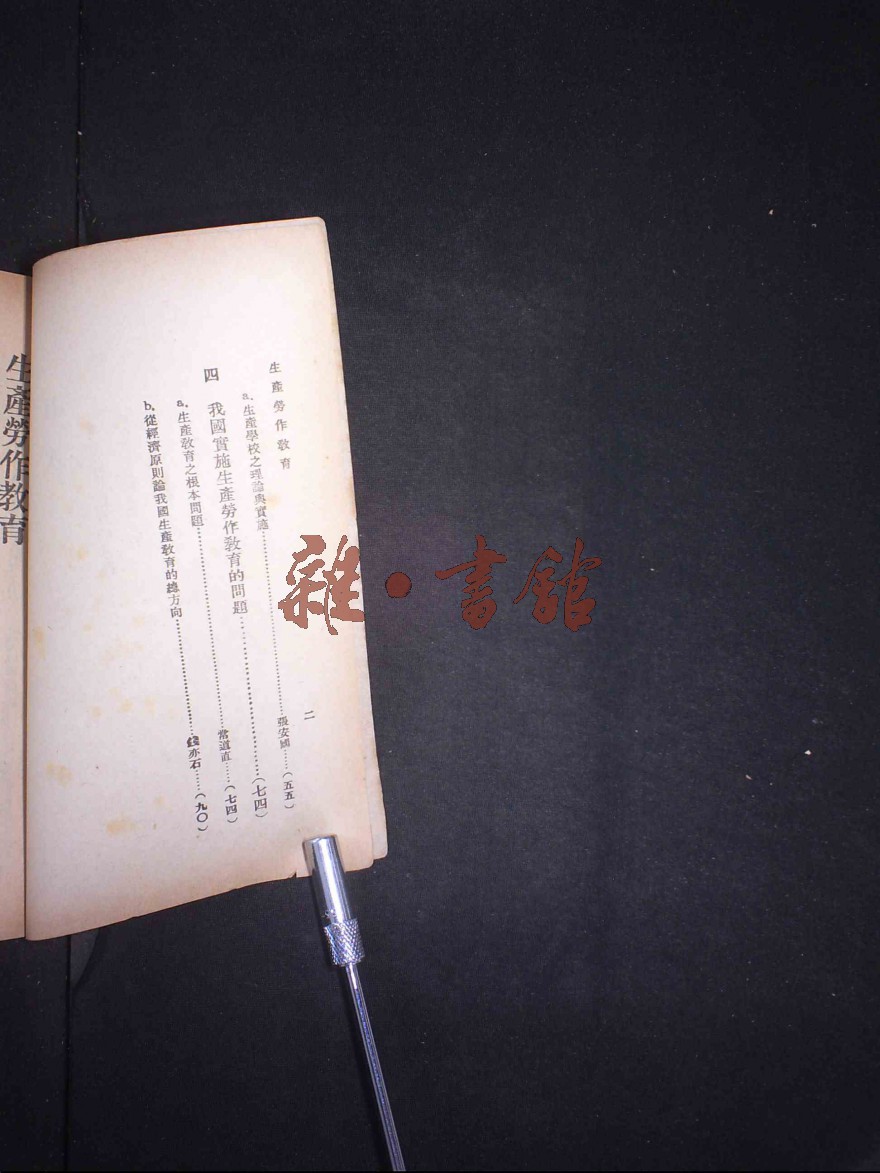 生產勞作教育
二
a. 生產學校之理論與實施……張安國……(五五)
四 我國實施生產勞作教育的問題……(七四)
a. 生產教育之根本問題……常道直……(七四)
b. 從經濟原則論我國生產教育的總方向……錢亦石……(九〇)
生產勞作教育
雜·書館